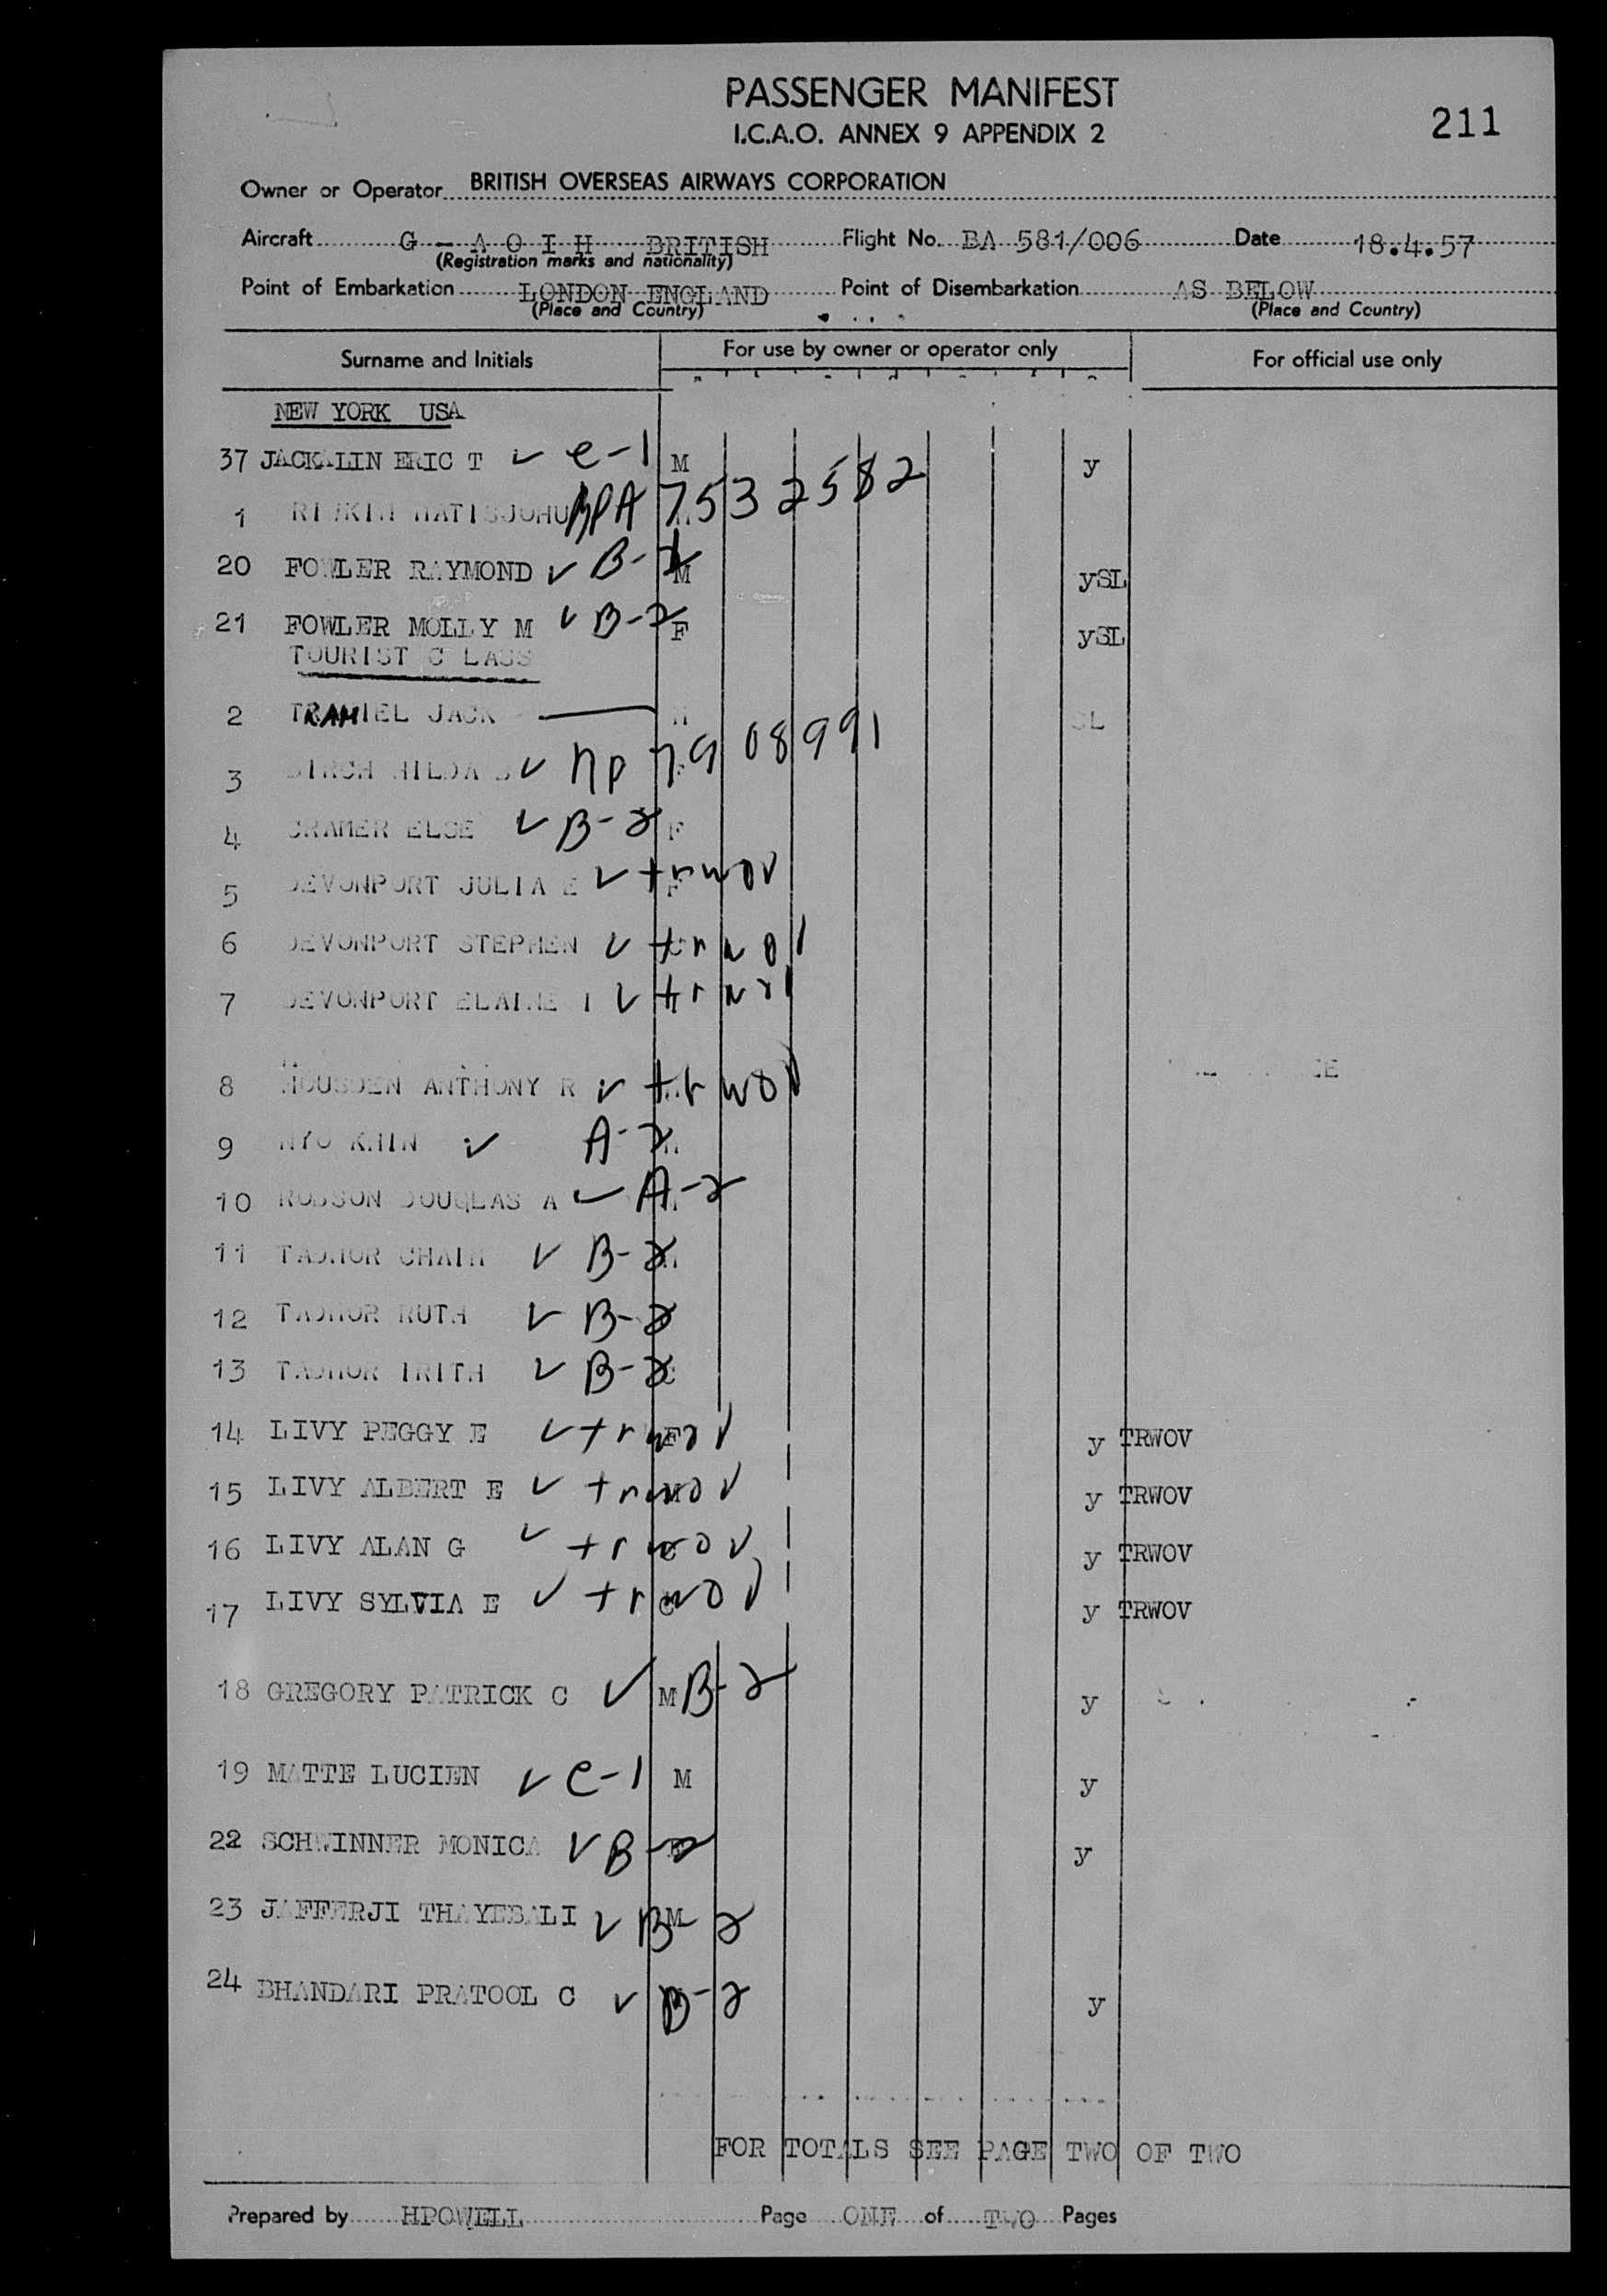 PASSENGER MANIFEST
I.C.A.O. ANNEX 9 APPENDIX 2
211
Owner or Operator BRITISH OVERSEAS AIRWAYS CORPORATION
Aircraft G - A O I H BRITISH Flight No. BA 581/006 Date 18.4.57
(Registration marks and nationality)
Point of Embarkation LONDON ENGLAND Point of Disembarkation AS BELOW
(Place and Country) (Place and Country)
Surname and Initials For use by owner or operator only For official use only
NEW YORK USA
37 JACKALIN ERIC T ✓ e-1 M y
1 7532582
20 FOWLER RAYMOND ✓ B-2 M ySL
21 FOWLER MOLLY M ✓ B-2 F ySL
TOURIST CLASS
2 TRAMIEL JACK SL
3 BIRCH HILDA ✓ np 7908991
4 CRAMER ELSE ✓ B-2 F
5 DEVONPORT JULIA E ✓ trwov F
6 DEVONPORT STEPHEN ✓ trwov
7 DEVONPORT ELAINE ✓ trwov
8 HOUSDEN ANTHONY R ✓ trwov
9 NYO KHIN ✓ A-2
10 ROBSON DOUGLAS A ✓ A-2
11 TADMOR CHAIM ✓ B-2
12 TADMOR RUTH ✓ B-2
13 TADMOR IRITH ✓ B-2 C
14 LIVY PEGGY E ✓ trwov F y TRWOV
15 LIVY ALBERT E ✓ trwov M y TRWOV
16 LIVY ALAN G ✓ trwov C y TRWOV
17 LIVY SYLVIA E ✓ trwov C y TRWOV
18 GREGORY PATRICK C ✓ M B-2 y
19 MATTE LUCIEN ✓ e-1 M y
22 SCHWINNER MONICA ✓ B-2 F y
23 JAFFERJI THAYEBALI ✓ B-2 M
24 BHANDARI PRATOOL C ✓ B-2 M y
FOR TOTALS SEE PAGE TWO OF TWO
Prepared by HPOWELL Page ONE of TWO Pages